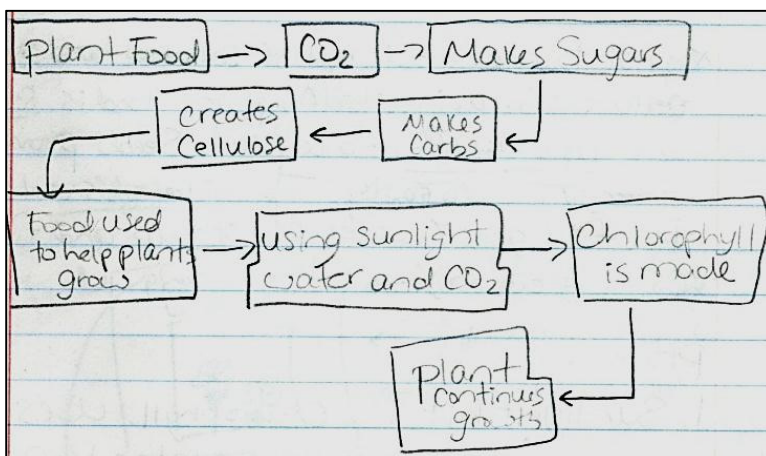 Plant Food
CO₂
Makes Sugars
Makes
Carbs
Creates
Cellulose
Food used
to help plants
grow
using sunlight
water and CO₂
Chlorophyll
is made
plant
continues
growth